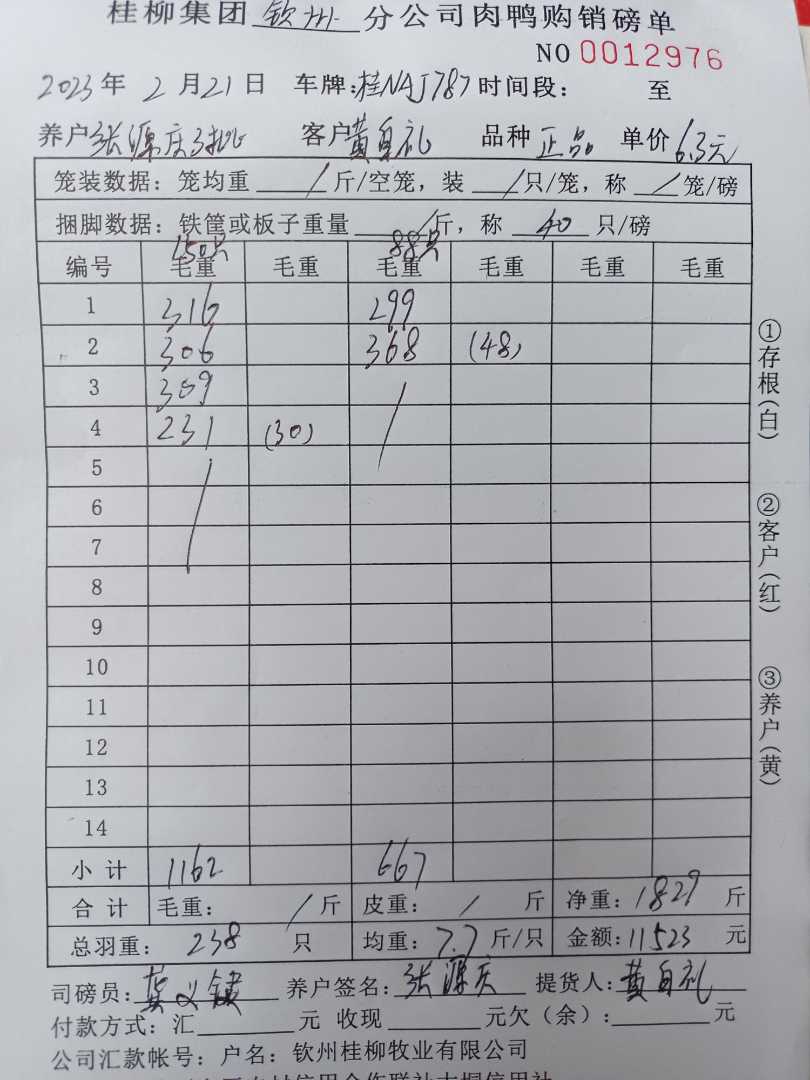 桂柳集团 钦州 分公司肉鸭购销磅单
NO 0012976
2023年 2月21日 车牌:桂NAJ787 时间段: 至
养户张源庆3批 客户黄自礼 品种 正品 单价6.3元
笼装数据：笼均重 / 斤/空笼，装 / 只/笼，称 / 笼/磅
捆脚数据：铁筐或板子重量 / 斤，称 40 只/磅
150只 88只
编号 毛重 毛重 毛重 毛重 毛重 毛重
1 316 299
2 306 368 (48)
3 309 /
4 231 (30)
5 /
6
7
8
9
10
11
12
13
14
小计 1162 667
合计 毛重: / 斤 皮重: / 斤 净重: 1829 斤
总羽重: 238 只 均重: 7.7 斤/只 金额: 11523 元
司磅员: 养户签名: 张源庆 提货人: 黄自礼
付款方式: 汇 元 收现 元欠（余）: 元
公司汇款帐号: 户名: 钦州桂柳牧业有限公司
①存根(白)
②客户(红)
③养户(黄)